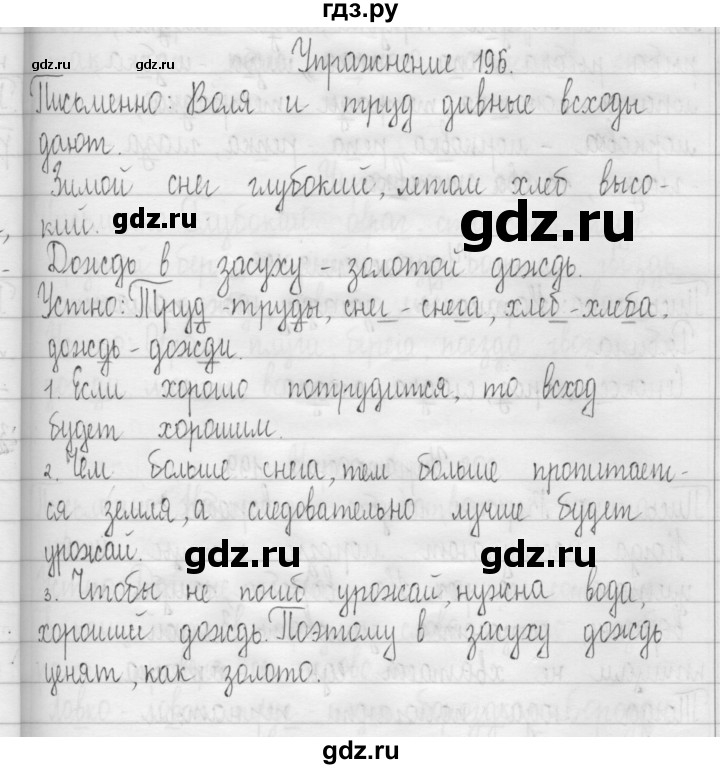 гдз.ру
Упражнение 196.
Письменно: Воля и труд дивные всходы
дают.
Зимой снег глубокий, летом хлеб высо-
кий.
gdz.ru
gdz.ru
Дождь в засуху - золотой дождь.
Устно: Труд - труды, снег - снега, хлеб - хлеба,
дождь - дожди.
1. Если хорошо потрудится, то всход
будет хорошим.
2. Чем больше снега, тем больше пропитает-
ся земля, а следовательно лучше будет
урожай.
gdz.ru
gdz.ru
3. Чтобы не погиб урожай, нужна вода,
хороший дождь. Поэтому в засуху дождь
ценят, как золото.
gdz.ru